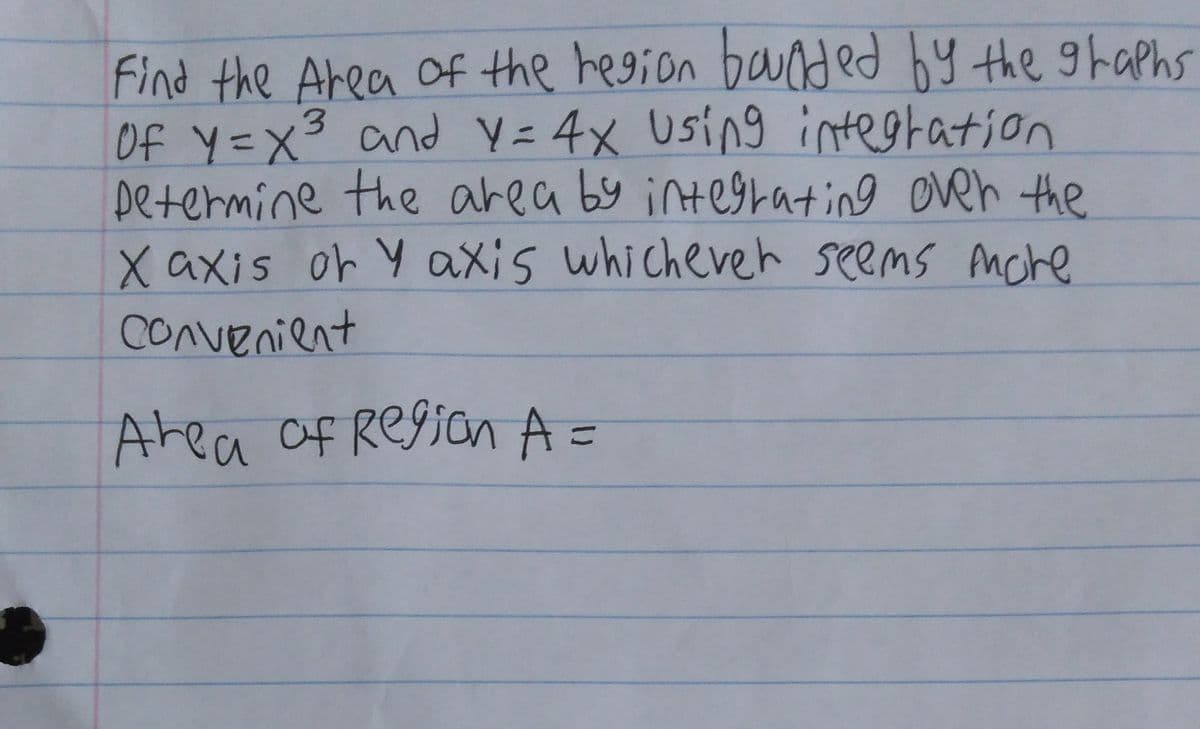 Find the Area of the region bounded by the graphs
Of y=x³ and y=4x Using integration
Determine the area by integrating over the
X axis or Y axis whichever seems more
convenient
Area of Region A =